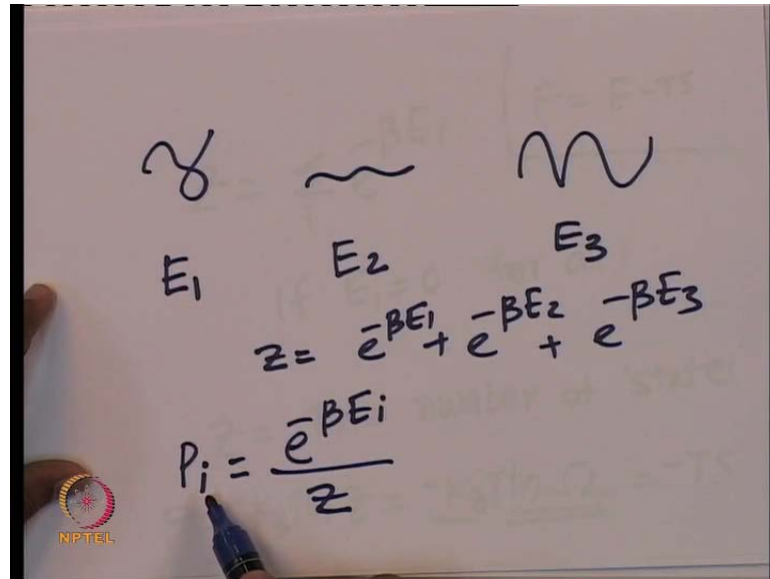 E₁ E₂ E₃
z = e^{-βE₁} + e^{-βE₂} + e^{-βE₃}
P_i = e^{-βE_i} / z
NPTEL